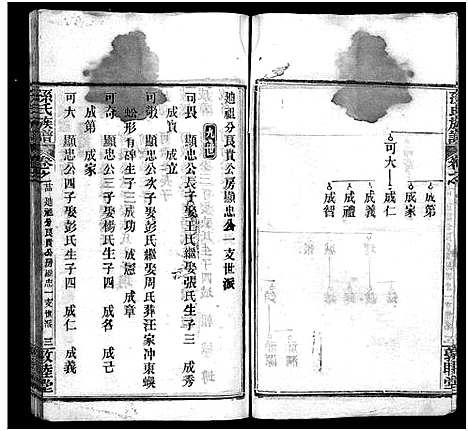 成第
成家
可大
成仁
成義
成禮
成智
廸祖分良貴公房顯忠公一支世派
九世
可畏 顯忠公長子娶王氏繼娶張氏生子三 成秀
成貢 成立
可敬 顯忠公次子娶 氏繼娶周氏葬汪家冲東蜈
蚣形有碑生子三成功 成憲 成章
可奇 顯忠公三子娶楊氏生子四 成名 成己
成第 成家
可大 顯忠公四子娶彭氏生子四 成仁 成義
孫氏族譜 卷之 廸祖分良貴公房顯忠一支世派 三 敦睦堂